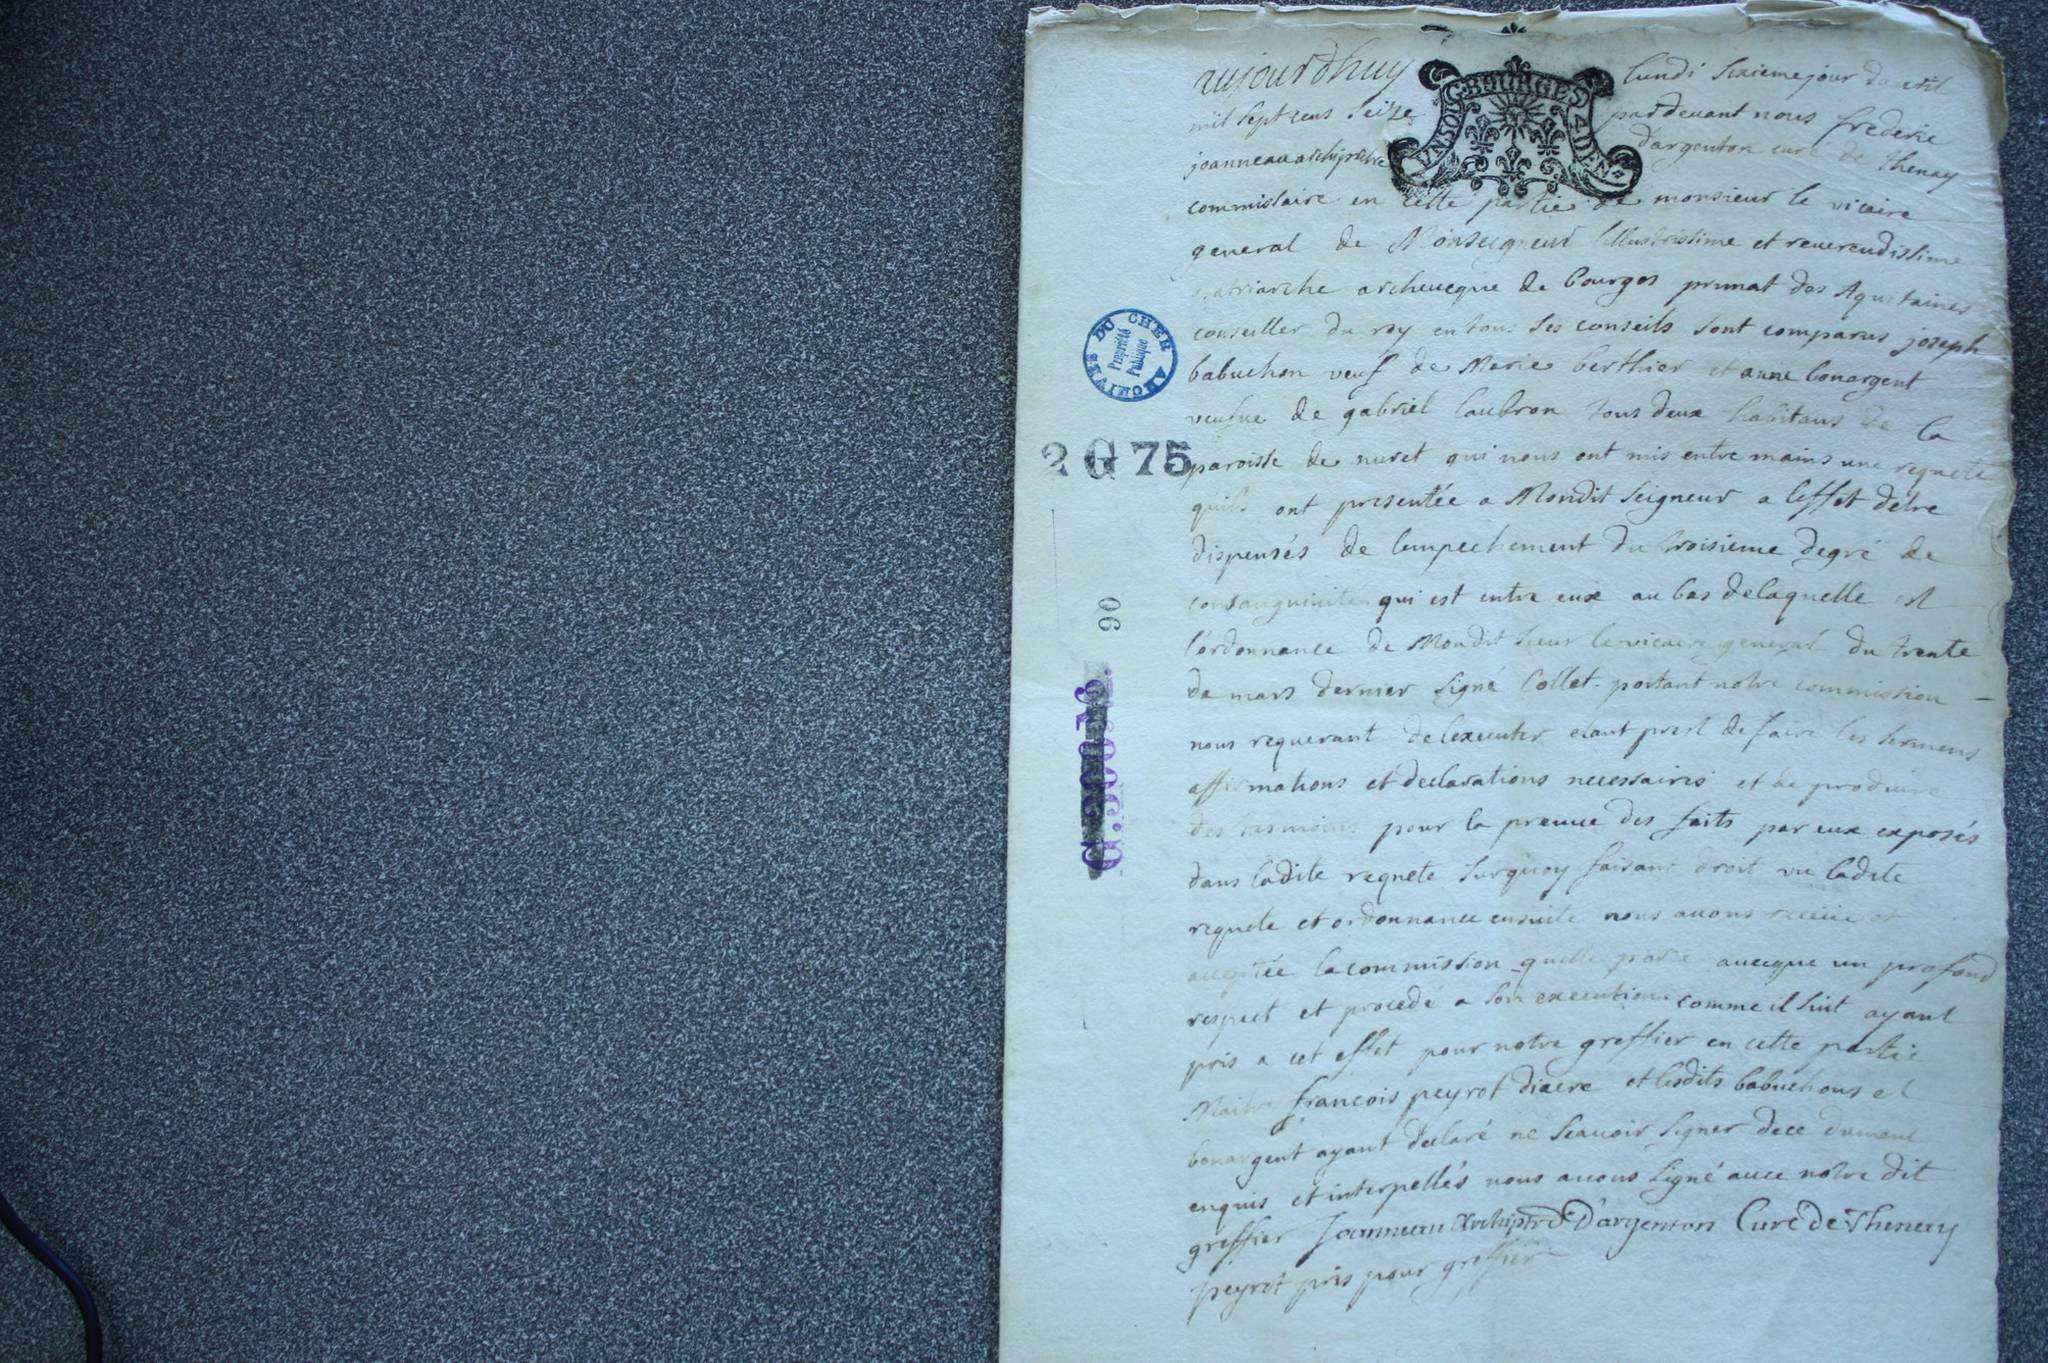 aujourdhuy lundi sixieme jour davril
G. BOURGES
UN SOL 4 DEN.
mil sept cens seize pardevant nous frederic
joanneau archiprêtre d'argenton curé de Thenay
commissaire en cette partie de monsieur le vicaire
general de Monseigneur lillustrissime et reverendissime
patriarche archeveque de bourges primat des Aquitaines
conseiller du roy en tous ses conseils sont comparus joseph
babuchon veuf de Marie berthier et anne bonargent
veufve de gabriel laubron tous deux habitans de la
paroisse de nuret qui nous ont mis entre mains une requete
quils ont presentée a Mondit Seigneur a leffet detre
dispensés de lempechement du troisieme degré de
consanguinité qui est entre eux au bas delaquelle est
l'ordonnance de Mondit sieur le vicaire general du trente
de mars dernier signé Collet portant notre commission
nous requerant de lexecuter etant prest de faire les sermens
affirmations et declarations necessaires et de produire
des tesmoins pour la preuve des faits par eux exposés
dans ladite requete surquoy faisant droit vu ladite
requete et ordonnance ensuite nous avons receüe et
acceptée la commission quelle porte avecque un profond
respect et procedé a son execution comme il suit ayant
pris a cet effet pour notre greffier en cette partie
Maitre françois peyrot diacre et lesdits babuchons et
bonargent ayant declaré ne scavoir signer de ce dument
enquis et interpellés nous avons signé avec notre dit
greffier Joanneau Archiptre D'argenton Curé de Thenay
peyrot pris pour greffier
ARCHIVES DU CHER
Propriété
Publique
2 G 75
90